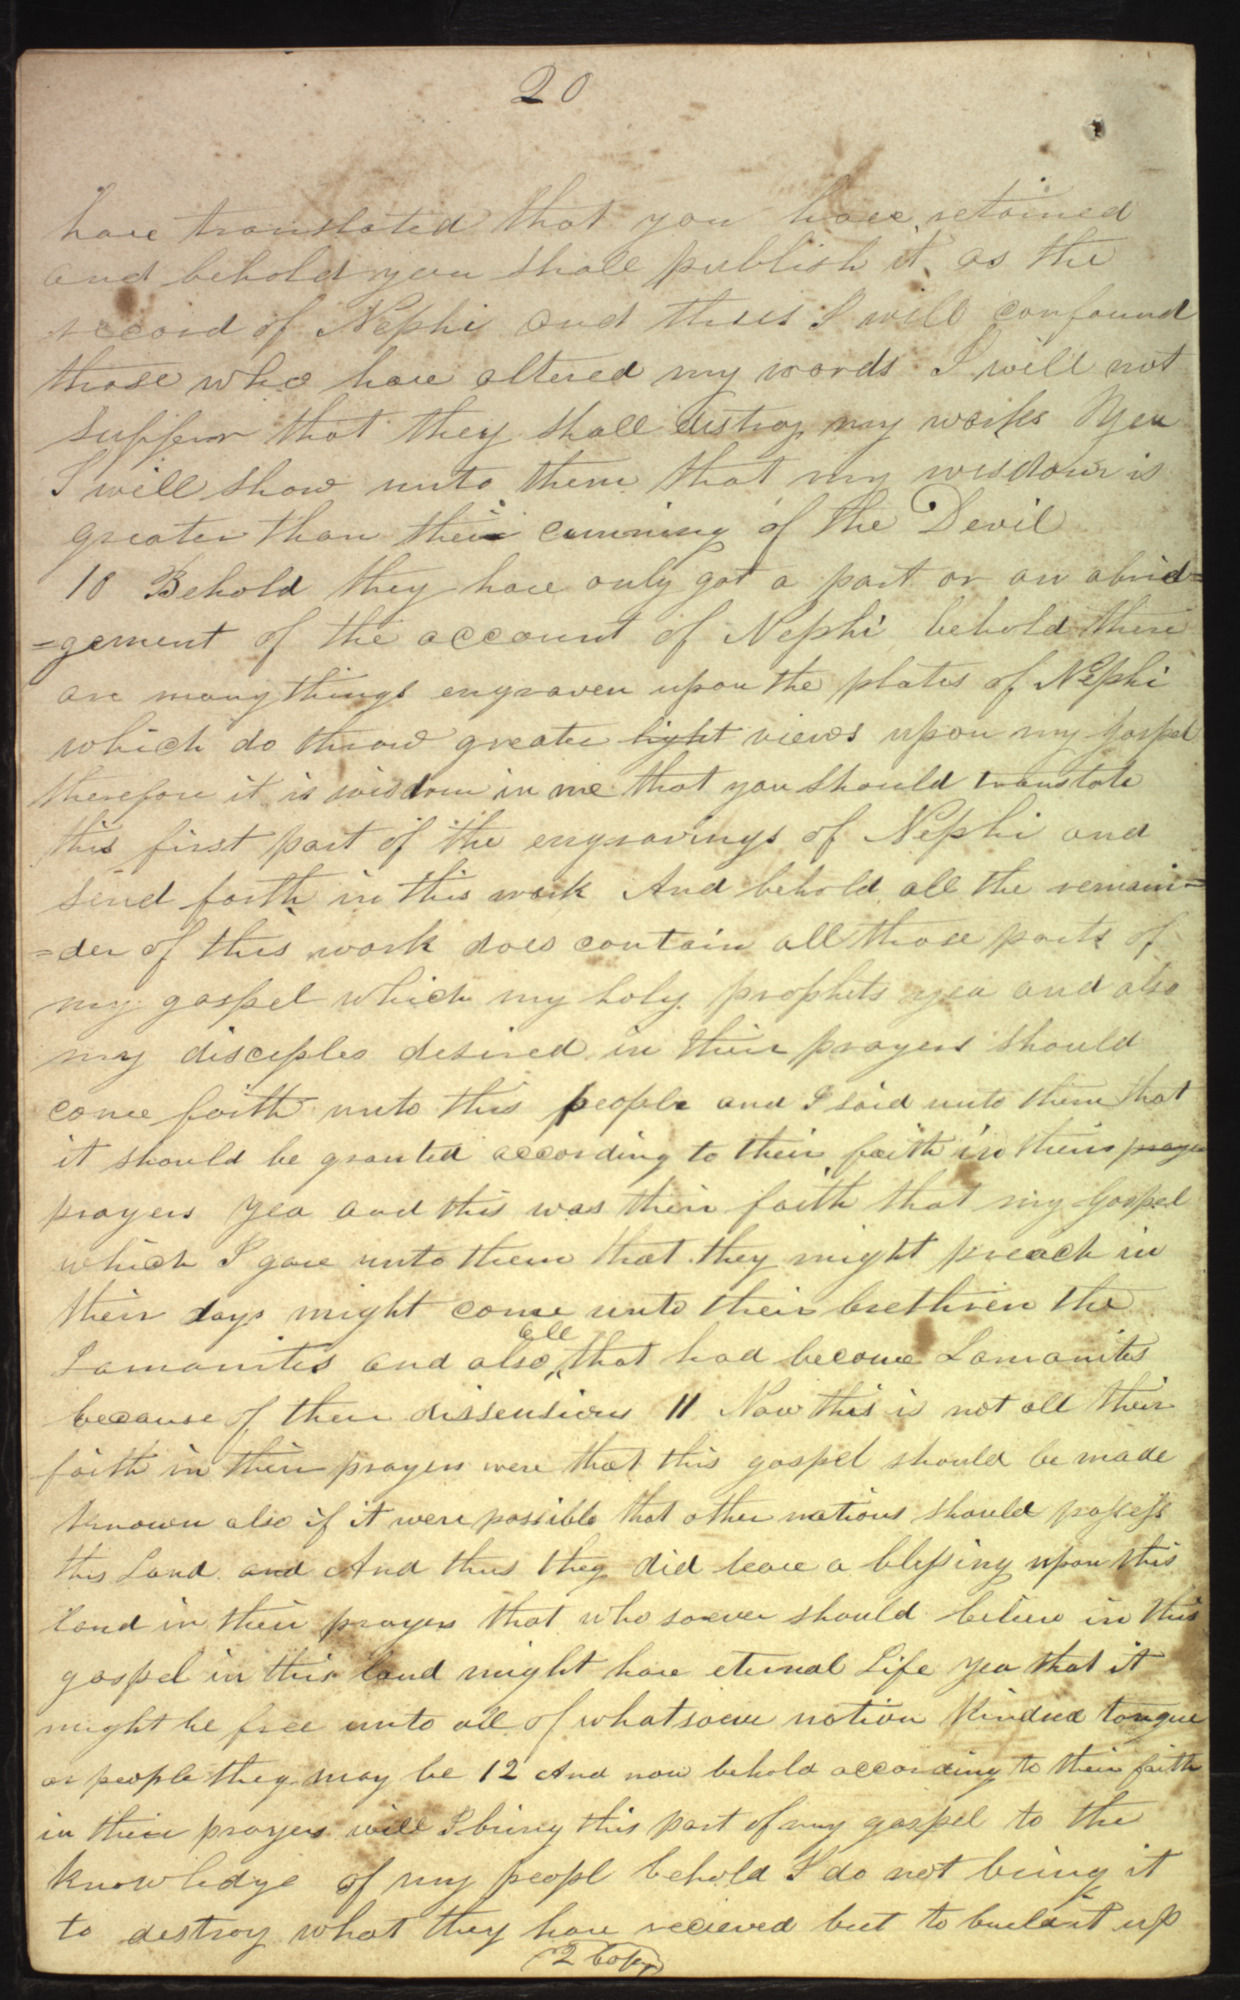 20
have translated that you have retained
and behold you shall publish it as the
record of Nephi and thus I will confound
those who have altered my words I will not
suffer that they shall distroy my works Yea
I will show unto them that my wisdom is
greater than their cunning of the Devil
10 Behold they have only got a part or an abrid=
=gement of the account of Nephi behold there
are many things engraven upon the plates of Nephi
which do throw greater light views upon my gospel
therefore it is wisdom in me that you should translate
this first part of the engravings of Nephi and
send forth in this work And behold all the remain=
=der of this work does contain all those parts of
my gospel which my holy prophets yea and also
my disciples desired in their prayers should
come forth unto this people and I said unto them that
it should be granted according to their faith in their praye
prayers Yea and this was their faith that my Gospel
which I gave unto them that they might preach in
their days might come unto their brethren the
all
Lamanites and also that had become Lamanites
because of their dissensions 11 Now this is not all their
faith in their prayers were that this gospel should be made
known also if it were possible that other nations should possess
this Land and And thus they did leave a blessing upon this
land in their prayers that who soever should believe in this
gospel in this land might have eternal Life Yea that it
might be free unto all of whatsoever nation Kindred tongue
or people they may be 12 And now behold according to their faith
in their prayers will I bring this part of my gospel to the
knowledge of my peopl behold I do not bring it
to destroy what they have recieved but to build it up
2 Copy